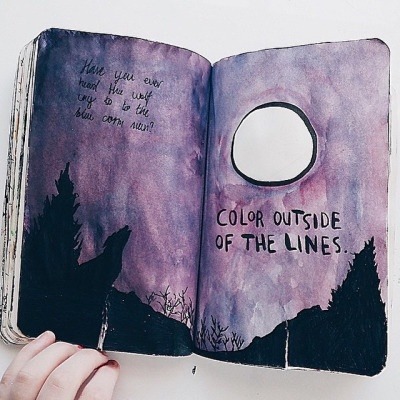 Have you ever
heard the wolf
cry to to the
blue corn moon?
COLOR OUTSIDE
OF THE LINES...